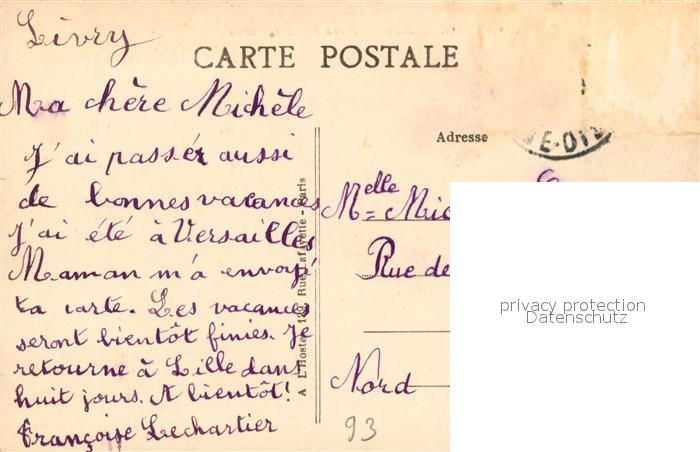 Livry
CARTE POSTALE
Ma chère Michèle
J'ai passér aussi
de bonnes vacances
J'ai été à Versailles
Maman m'a envoyé
ta carte. Les vacances
seront bientôt finies. Je
retourne à Lille dans
huit jours. A bientôt!
Françoise Lechartier
A L'Hoste, Rue Lafayette - Paris
Adresse
VE-DI
Melle = Mic
Rue de
Nord
93
privacy protection
Datenschutz